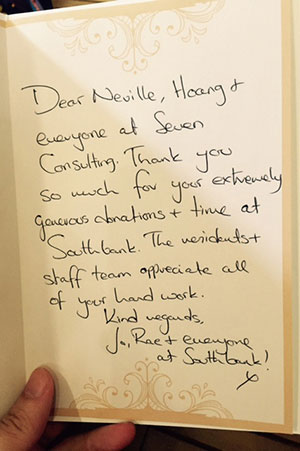 Dear Neville, Hoang +
everyone at Seven
Consulting. Thank you
so much for your extremely
generous donations + time at
Southbank. The residents +
staff team appreciate all
of your hard work.
Kind regards,
Jo, Rae + everyone
at Southbank!
x